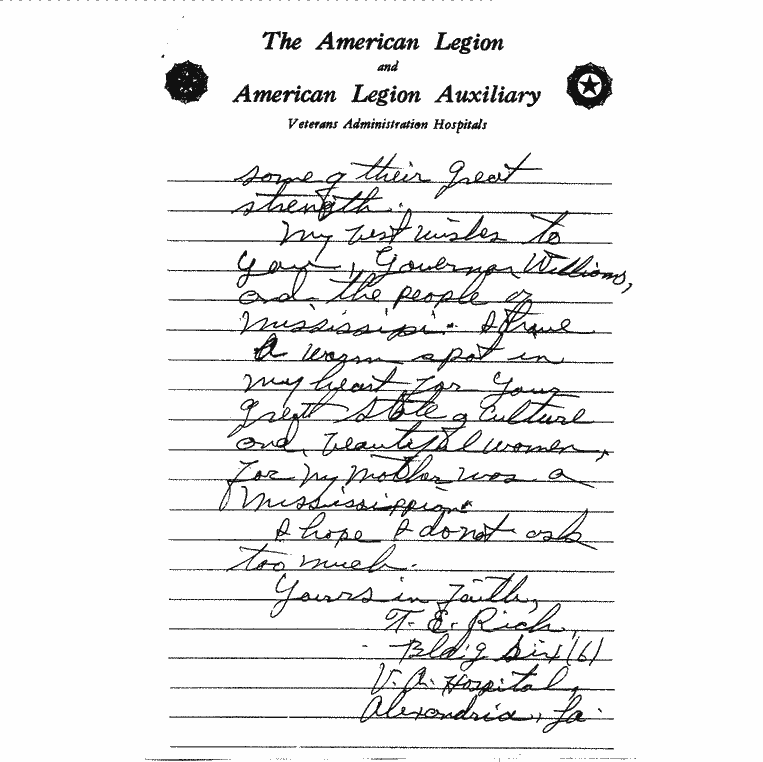 The American Legion
and
American Legion Auxiliary
Veterans Administration Hospitals
some of their great
strength.
My best wishes to
you, Governor Williams,
and the people of
Mississipi. I have
a warm spot in
my heart for your
great state of culture
and beautiful women,
for my mother was a
Mississippian.
I hope I do not ask
too much.
Yours in faith,
T. E. Rich,
Bld'g Six (6)
V.A. Hospital,
Alexandria, La.